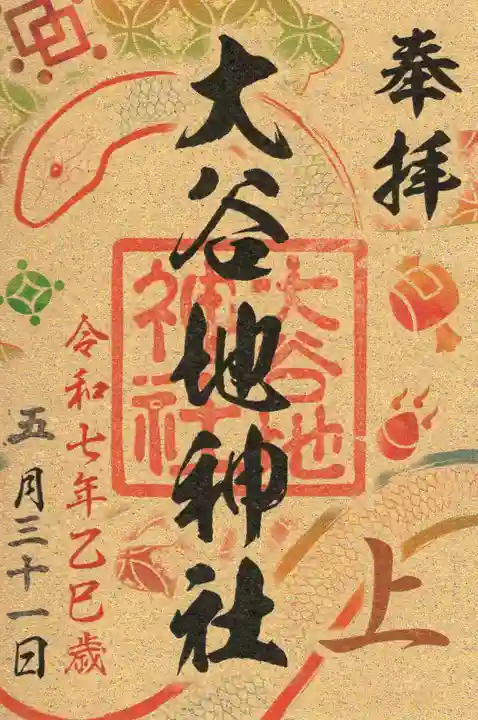 奉拝
大谷地神社
大谷地
神社
上
令和七年乙巳歳
五月三十一日